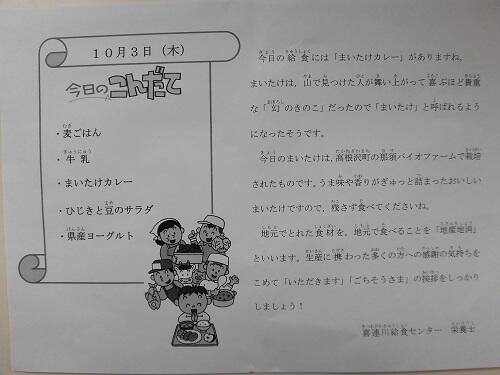 10月3日（木）
今日のこんだて
・麦ごはん
・牛乳
・まいたけカレー
・ひじきと豆のサラダ
・県産ヨーグルト
今日の給食には「まいたけカレー」がありますね。
まいたけは，山で見つけた人が舞い上がって喜ぶほど貴重
な「幻のきのこ」だったので「まいたけ」と呼ばれるように
なったそうです。
今日のまいたけは，高根沢町の那須バイオファームで栽培
されたものです。うま味や香りがぎゅっと詰まったおいしい
まいたけですので，残さず食べてくださいね。
地元でとれた食材を，地元で食べることを「地産地消」
といいます。生産に携わった多くの方への感謝の気持ちを
こめて「いただきます」「ごちそうさま」の挨拶をしっかり
しましょう！
喜連川給食センター　栄養士